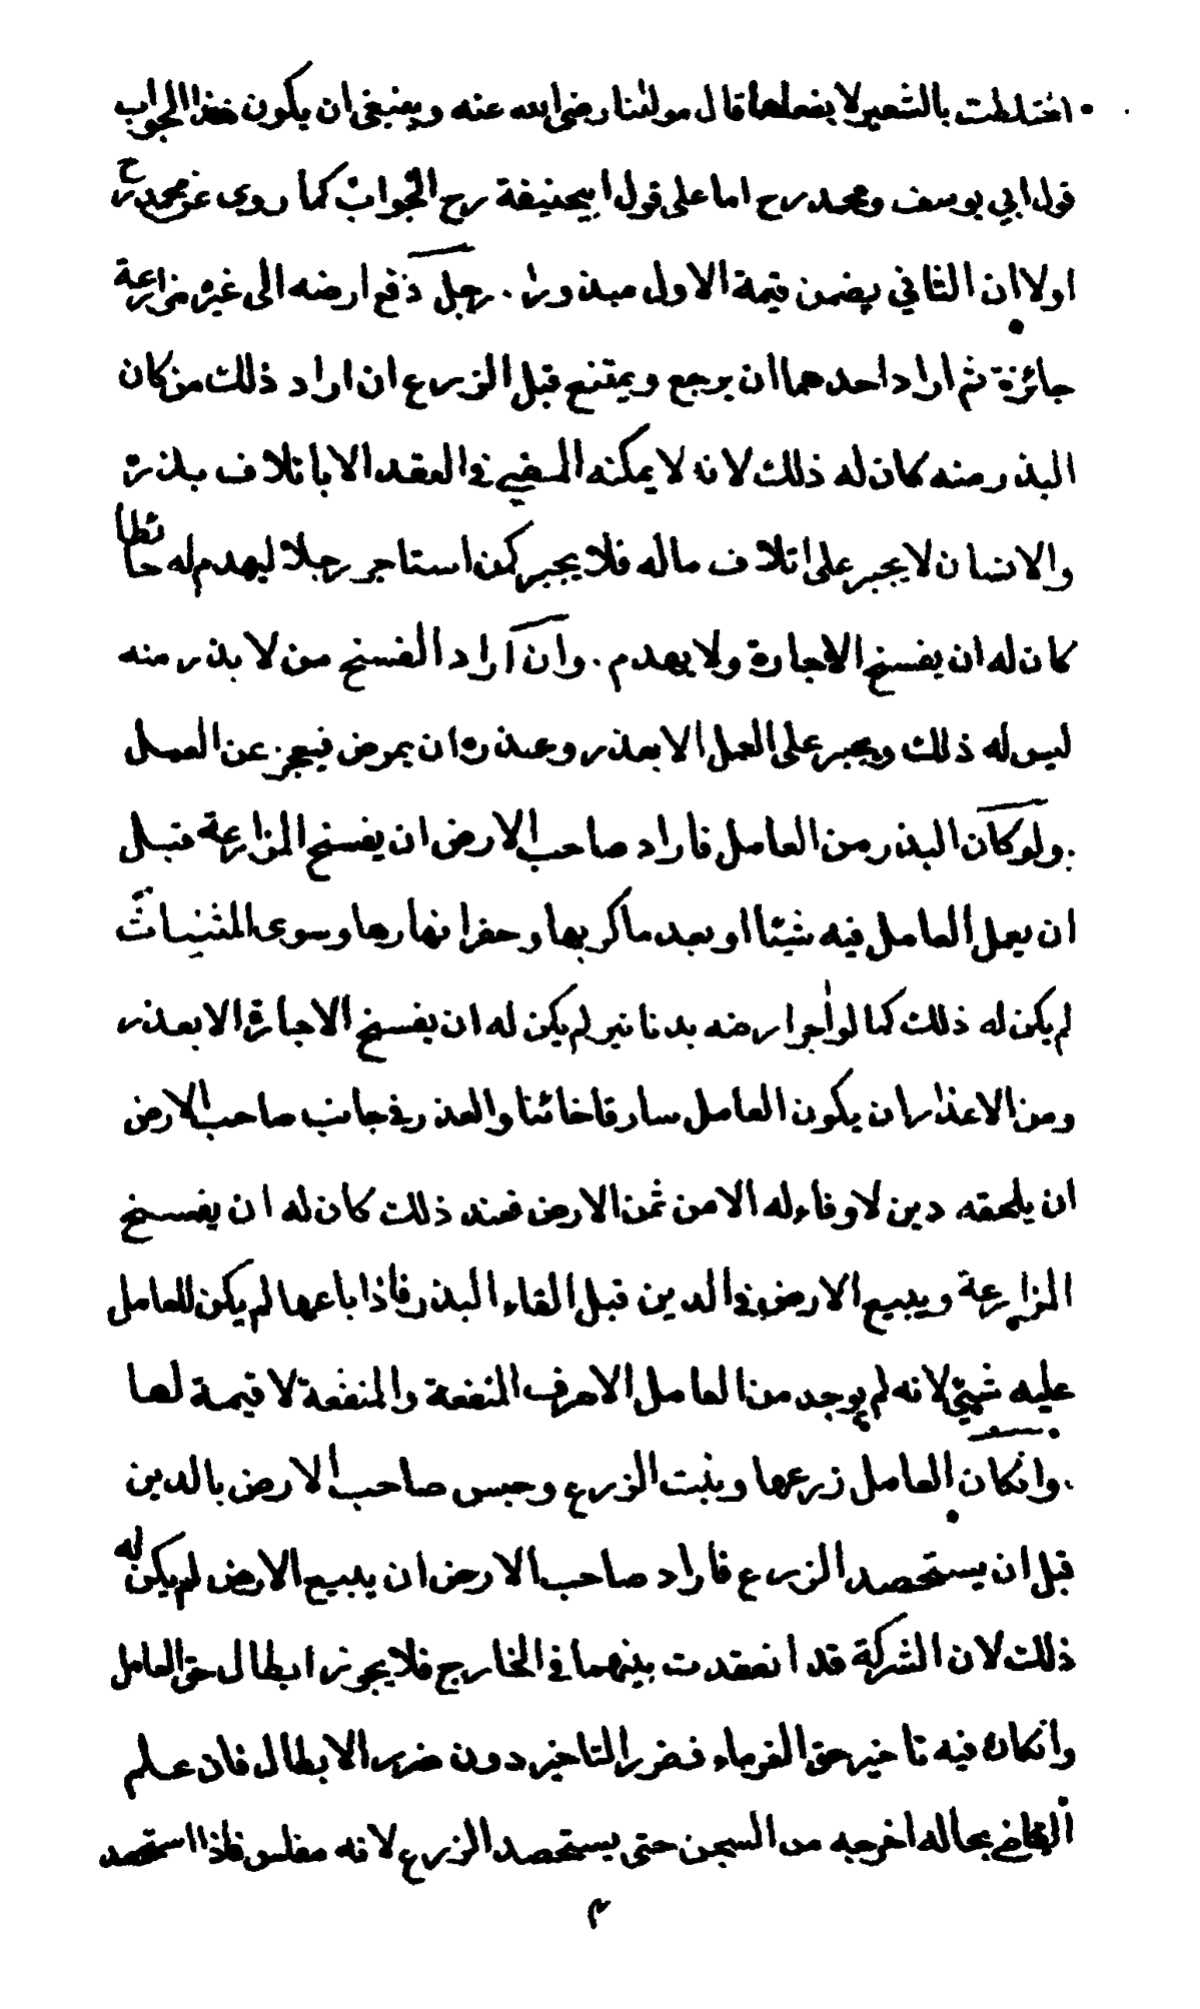 اختلطت بالشعير لا بفعلهما قال مولٰنا رضى الله عنه وينبغى ان يكون هذا الجواب
قول ابي يوسف ومحمد رح اما على قول ابيحنيفة رح الجواب كما روى عن محمد رح
اولا ان الثاني يضمن قيمة الاول مبذورا . رجل دفع ارضه الى غيره مزارعة
جائزة ثم اراد احدهما ان يرجع ويمتنع قبل الزرع ان اراد ذلك من كان
البذر منه كان له ذلك لانه لا يمكنه المضي في العقد الا باتلاف بذره
والانسان لا يجبر على اتلاف ماله فلا يجبر كمن استاجر رجلا ليهدم له حائطا
كان له ان يفسخ الاجارة ولا يهدم . وان اراد الفسخ من لا بذر منه
ليس له ذلك ويجبر على العمل الا بعذر وعذره ان يمرض فيعجز عن العمل
. ولو كان البذر من العامل فاراد صاحب الارض ان يفسخ المزارعة قبل
ان يعمل العامل فيه شيئا او بعد ما كربها وحفر انهارها وسوى المثنيات
لم يكن له ذلك كما لو اجر ارضه بدنانير لم يكن له ان يفسخ الاجارة الا بعذر
ومن الاعذار ان يكون العامل سارقا خائنا والعذر في جانب صاحب الارض
ان يلحقه دين لا وفاء له الا من ثمن الارض فعند ذلك كان له ان يفسخ
المزارعة ويبيع الارض في الدين قبل القاء البذر فاذا باعها لم يكن للعامل
عليه شيئ لانه لم يوجد من العامل الا صرف المنفعة والمنفعة لا قيمة لها
. وانكان العامل زرعها وينبت الزرع وحبس صاحب الارض بالدين
قبل ان يستحصد الزرع فاراد صاحب الارض ان يبيع الارض لم يكن له
ذلك لان الشركة قد انعقدت بينهما في الخارج فلا يجوز ابطال حق العامل
وانكان فيه تاخير حق الغرماء فضرر التاخير دون ضرر الابطال فان علم
القاضي بحاله اخرجه من السجن حتى يستحصد الزرع لانه مفلس فاذا استحصد